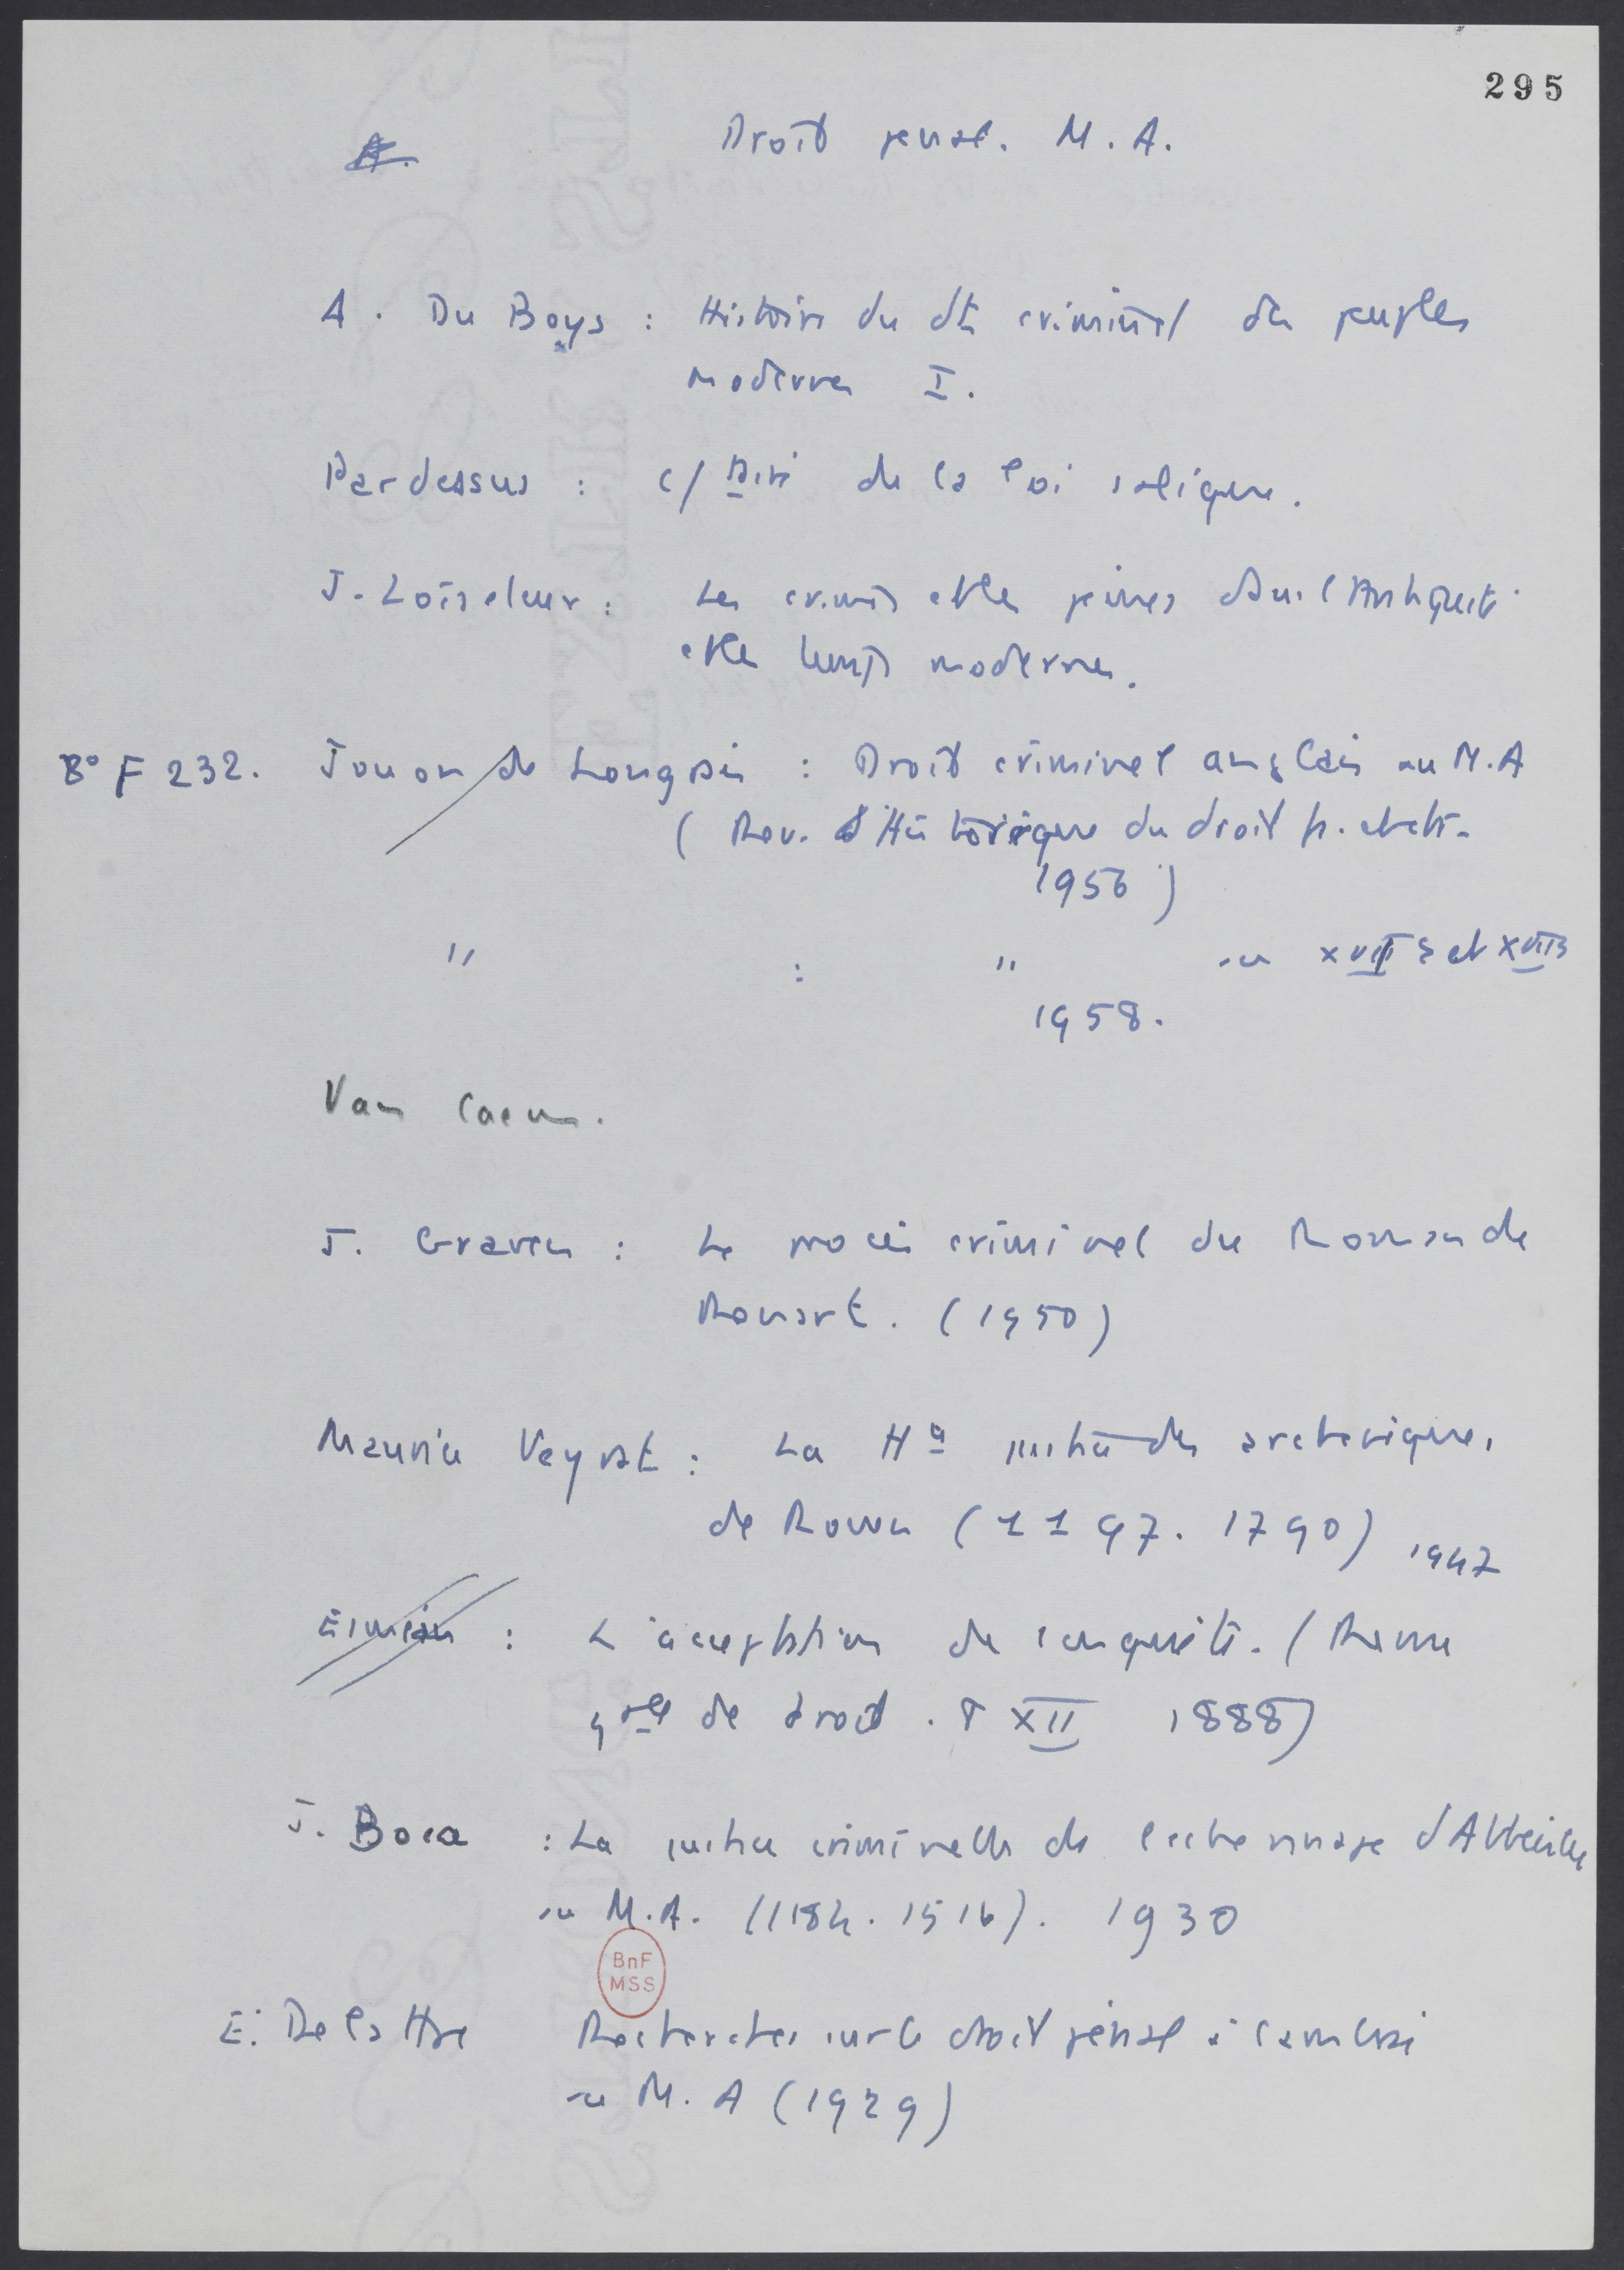 295
A.
Droit pénal. M. A.
A. Du Boys : Histoire du dt criminel des peuples
modernes I.
Pardessus : de la loi salique.
J. Loiseleur : Les crimes et les peines dans l'Antiquité
et les temps modernes.
8° F 232. Jouon de Longrais : Droit criminel anglais au M.A
( Rev. Historique du droit fr. et etr.
1956 )
" : " au XVII et XVIII
1958.
Van Caen.
J. Graven : Le procès criminel du Roman de
Renart. (1950)
Maurice Veyrat : La Hte justice des archevêques
de Rouen (1197. 1790) 1947
Esmein : L'acceptation de l'enquête. (Revue
gale de droit. T XII 1888)
J. Boca : La justice criminelle de l'échevinage d'Abbeville
au M.A. (1184. 1516). 1930
E. Delattre Recherches sur le droit pénal à Cambrai
au M. A (1929)
BnF
MSS